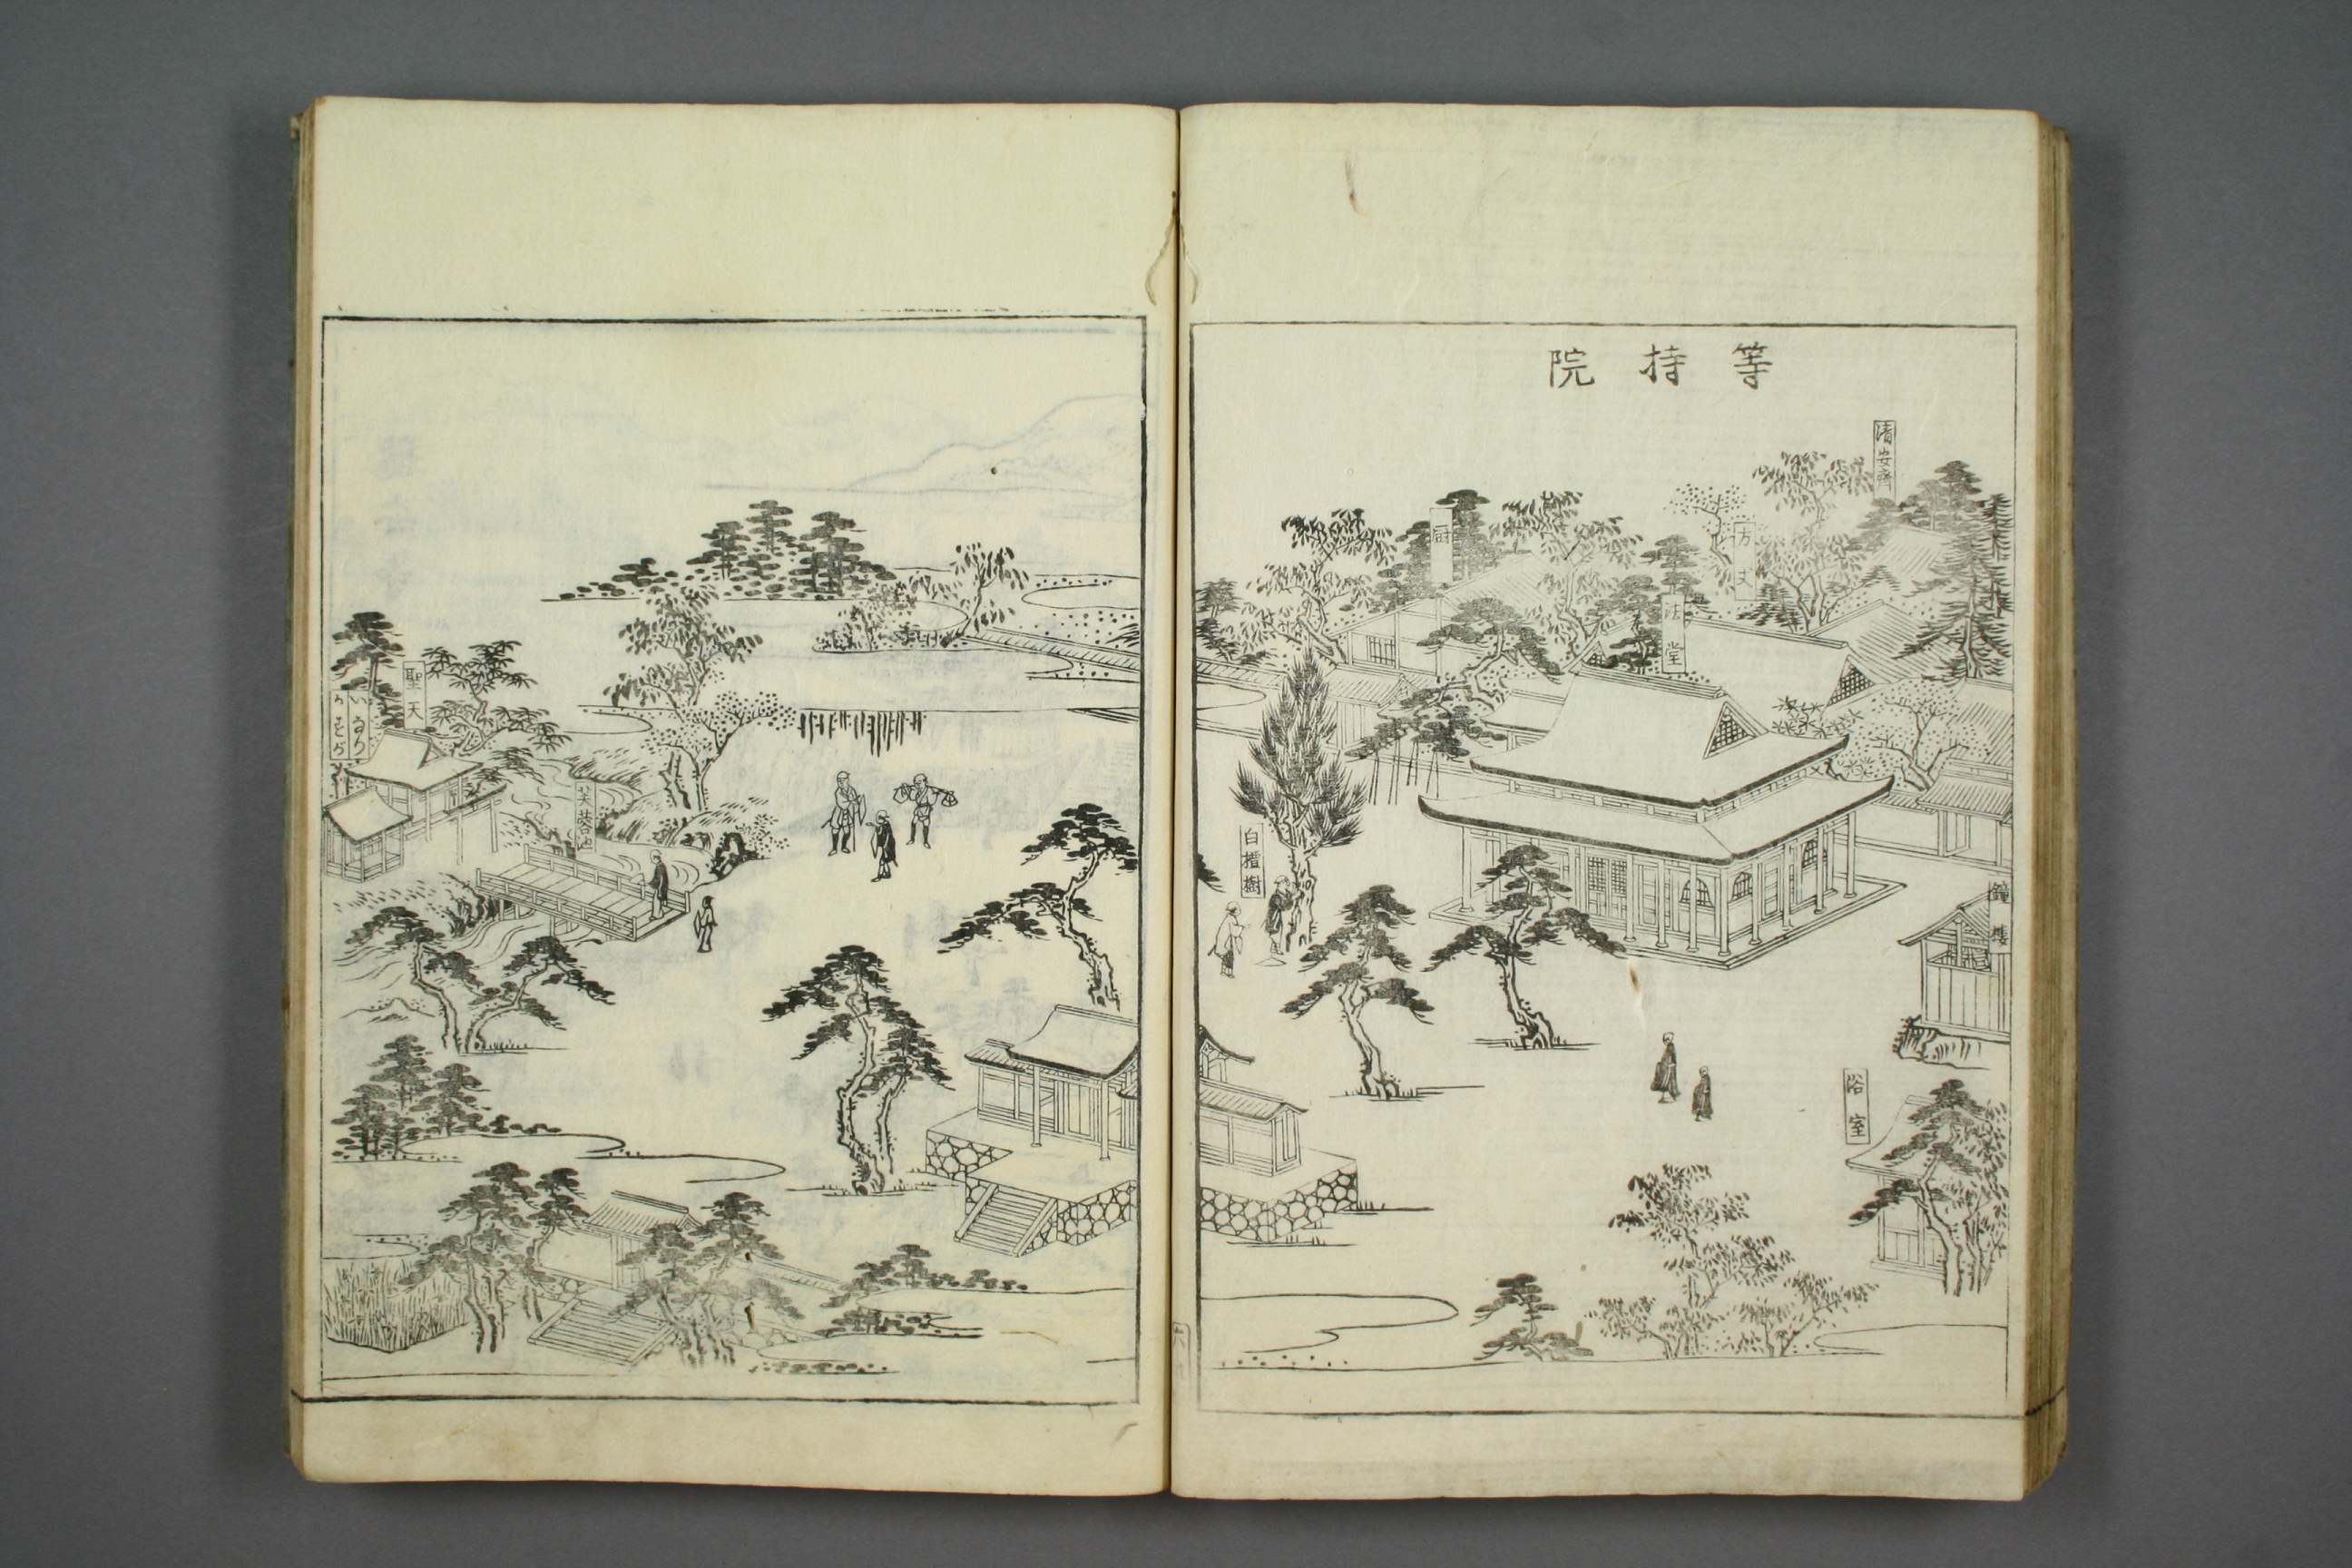 等持院
清安斎
方丈
法堂
厨
鐘楼
浴室
白槙樹
芙蓉池
聖天
いなり
かすが